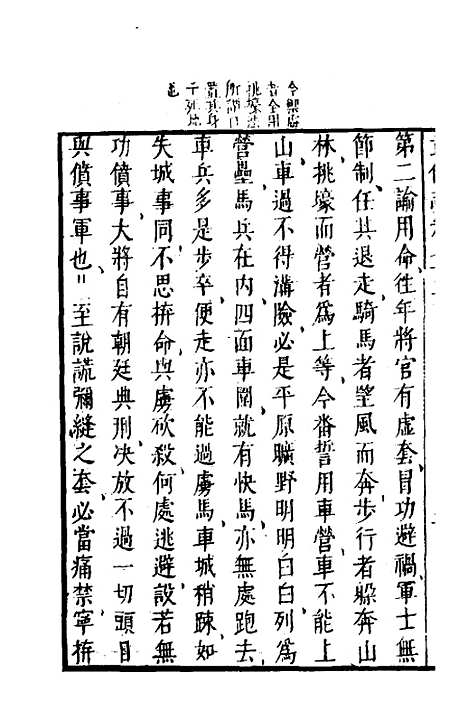 今禦虜
者全用
挑壕法
所謂
置其身
于死地
也
第二諭用命往年將官有虛套冒功避禍軍士無
節制任其退走騎馬者望風而奔步行者躲奔山
林挑壕而營者爲上等今番誓用車營車不能上
山車過不得溝險必是平原曠野明明白白列爲
營壘馬兵在內四面車圍就有快馬亦無處跑去
車兵多是步卒便走亦不能過虜馬車城稍踈如
失城事同不思拚命與虜砍殺何處逃避設若無
功僨事大將自有朝廷典刑决放不過一切頭目
與僨事軍也〃至說謊彌縫之套必當痛禁寧拚